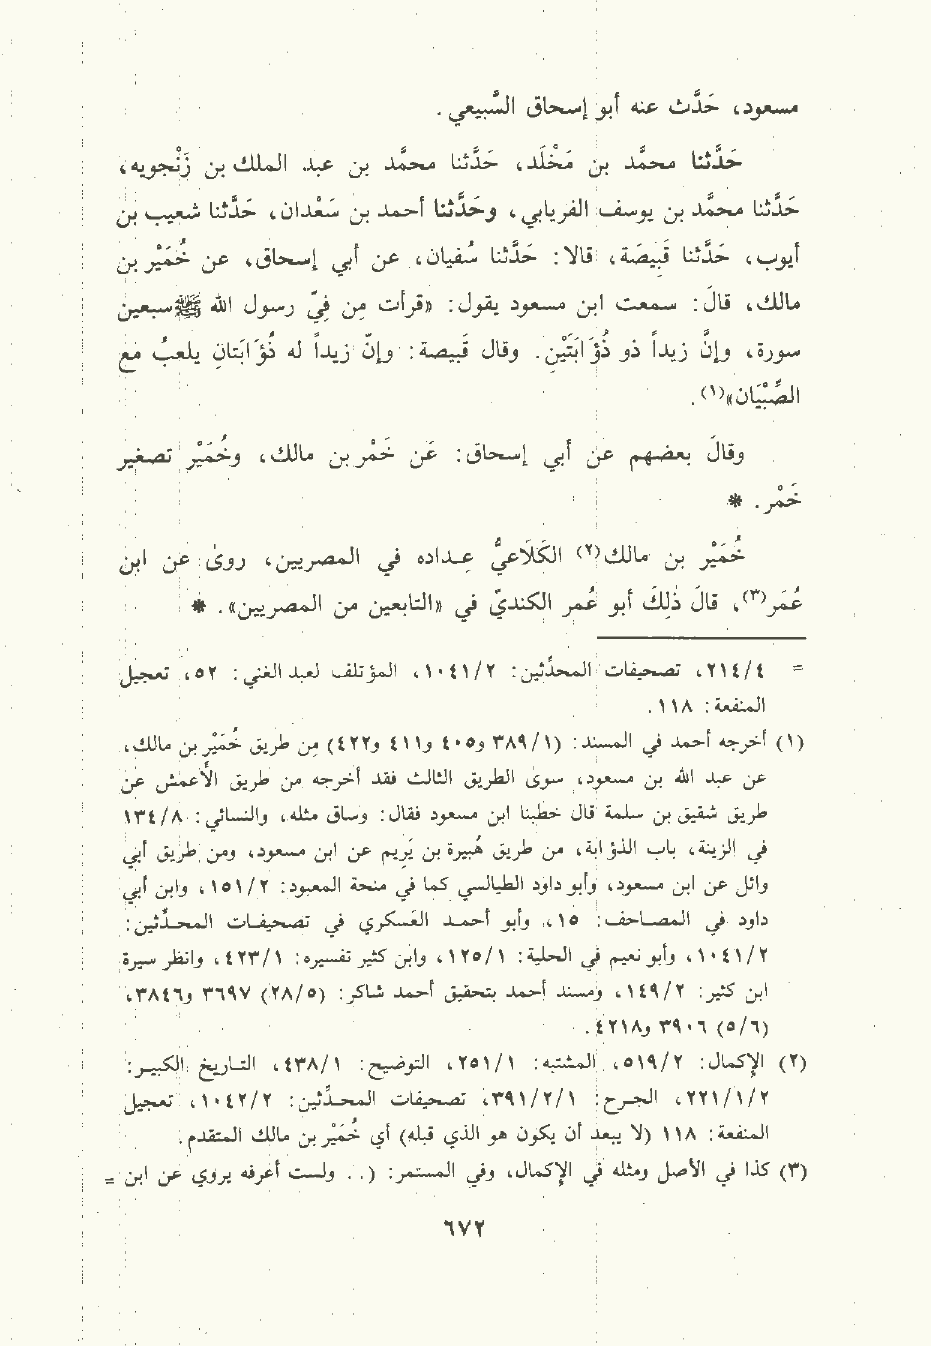 مسعود، حَدَّث عنه أبو إسحاق السَّبيعي.
حَدَّثنا محمَّد بن مَخْلَد، حَدَّثنا محمَّد بن عبد الملك بن زَنْجويه،
حَدَّثنا محمَّد بن يوسف الفريابي، وحَدَّثنا أحمد بن سَعْدان، حَدَّثنا شعيب بن
أيوب، حَدَّثنا قَبِيصَة، قالا: حَدَّثنا سُفيان، عن أبي إسحاق، عن خُمَيْر بن
مالك، قالَ: سمعت ابن مسعود يقول: «قرأت مِن فِيّ رسول الله ﷺ سبعين
سورة، وإنَّ زيداً ذو ذُؤَابَتَيْنِ. وقال قَبيصة: وإنَّ زيداً له ذُؤَابَتانِ يلعبُ مع
الصِّبْيَان»(١).
وقالَ بعضهم عن أبي إسحاق: عَن خَمْر بن مالك، وخُمَيْر تصغير
خَمْر. *
خُمَيْر بن مالك(٢) الكَلَاعيُّ عِداده في المصريين، روىٰ عن ابن
عُمَر(٣)، قالَ ذٰلِكَ أبو عُمر الكنديّ في «التابعين من المصريين». *
= ٢١٤/٤، تصحيفات المحدِّثين: ١٠٤١/٢، المؤتلف لعبد الغني: ٥٢، تعجيل
المنفعة: ١١٨.
(١) أخرجه أحمد في المسند: (٣٨٩/١ و٤٠٥ و٤١١ و٤٢٢) مِن طريق خُمَيْر بن مالك،
عن عبد الله بن مسعود، سوىٰ الطريق الثالث فقد أخرجه من طريق الأَعمش عن
طريق شقيق بن سلمة قال خطبنا ابن مسعود فقال: وساق مثله. والنسائي: ١٣٤/٨
في الزينة، باب الذؤابة، من طريق هُبيرة بن يَرِيم عن ابن مسعود، ومن طريق أبي
وائل عن ابن مسعود، وأبو داود الطيالسي كما في منحة المعبود: ١٥١/٢، وابن أبي
داود في المصاحف: ١٥، وأبو أحمد العَسكري في تصحيفات المحدِّثين:
١٠٤١/٢، وأبو نعيم في الحلية: ١٢٥/١، وابن كثير تفسيره: ٤٢٣/١، وانظر سيرة
ابن كثير: ١٤٩/٢، ومسند أحمد بتحقيق أحمد شاكر: (٢٨/٥) ٣٦٩٧ و٣٨٤٦،
(٥/٦) ٣٩٠٦ و٤٢١٨.
(٢) الإكمال: ٥١٩/٢، المشتبه: ٢٥١/١، التوضيح: ٤٣٨/١، التاريخ الكبير:
٢٢١/١/٢، الجرح: ٣٩١/٢/١، تصحيفات المحدِّثين: ١٠٤٢/٢، تعجيل
المنفعة: ١١٨ (لا يبعد أن يكون هو الذي قبله) أي خُمَيْر بن مالك المتقدم.
(٣) كذا في الأصل ومثله في الإكمال، وفي المستمر: (.. ولست أعرفه يروي عن ابن =
٦٧٢